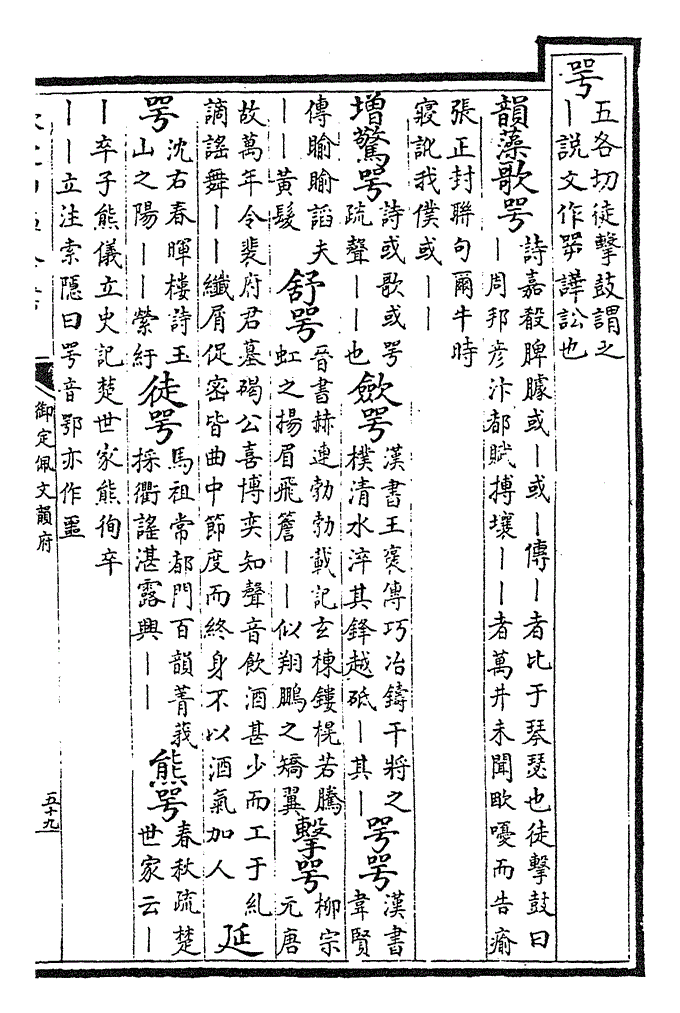 咢
五各切徒擊鼓謂之
丨說文作㖾譁訟也
韻藻歌咢
詩嘉殽脾臄或丨或丨傳丨者比于琴瑟也徒擊鼓曰
丨周邦彦汴都賦搏壤丨丨者萬井未聞歐嚘而告瘉
張正封聯句爾牛時
寢訛我僕或丨丨
增驚咢
詩或歌或咢
疏聲丨丨也
歛咢
漢書王襃傳巧冶鑄干將之
樸清水淬其鋒越砥丨其丨
咢咢
漢書
韋賢
傳睮睮謟夫
丨丨黃髮
舒咢
晉書赫連勃勃載記玄棟鏤榥若騰
虹之揚眉飛簷丨丨似翔鵬之矯翼
擊咢
柳宗
元唐
故萬年令裴府君墓碣公喜博奕知聲音飲酒甚少而工于糺
謫謡舞丨丨纖屑促密皆曲中節度而終身不以酒氣加人
延
咢
沈右春暉樓詩玉
山之陽丨丨縈紆
徒咢
馬祖常都門百韻菁莪
採衢謡湛露興丨丨
熊咢
春秋疏楚
世家云丨
丨卒子熊儀立史記楚世家熊徇卒
丨丨立注索隱曰咢音鄂亦作噩
御定佩文韻府
五十九